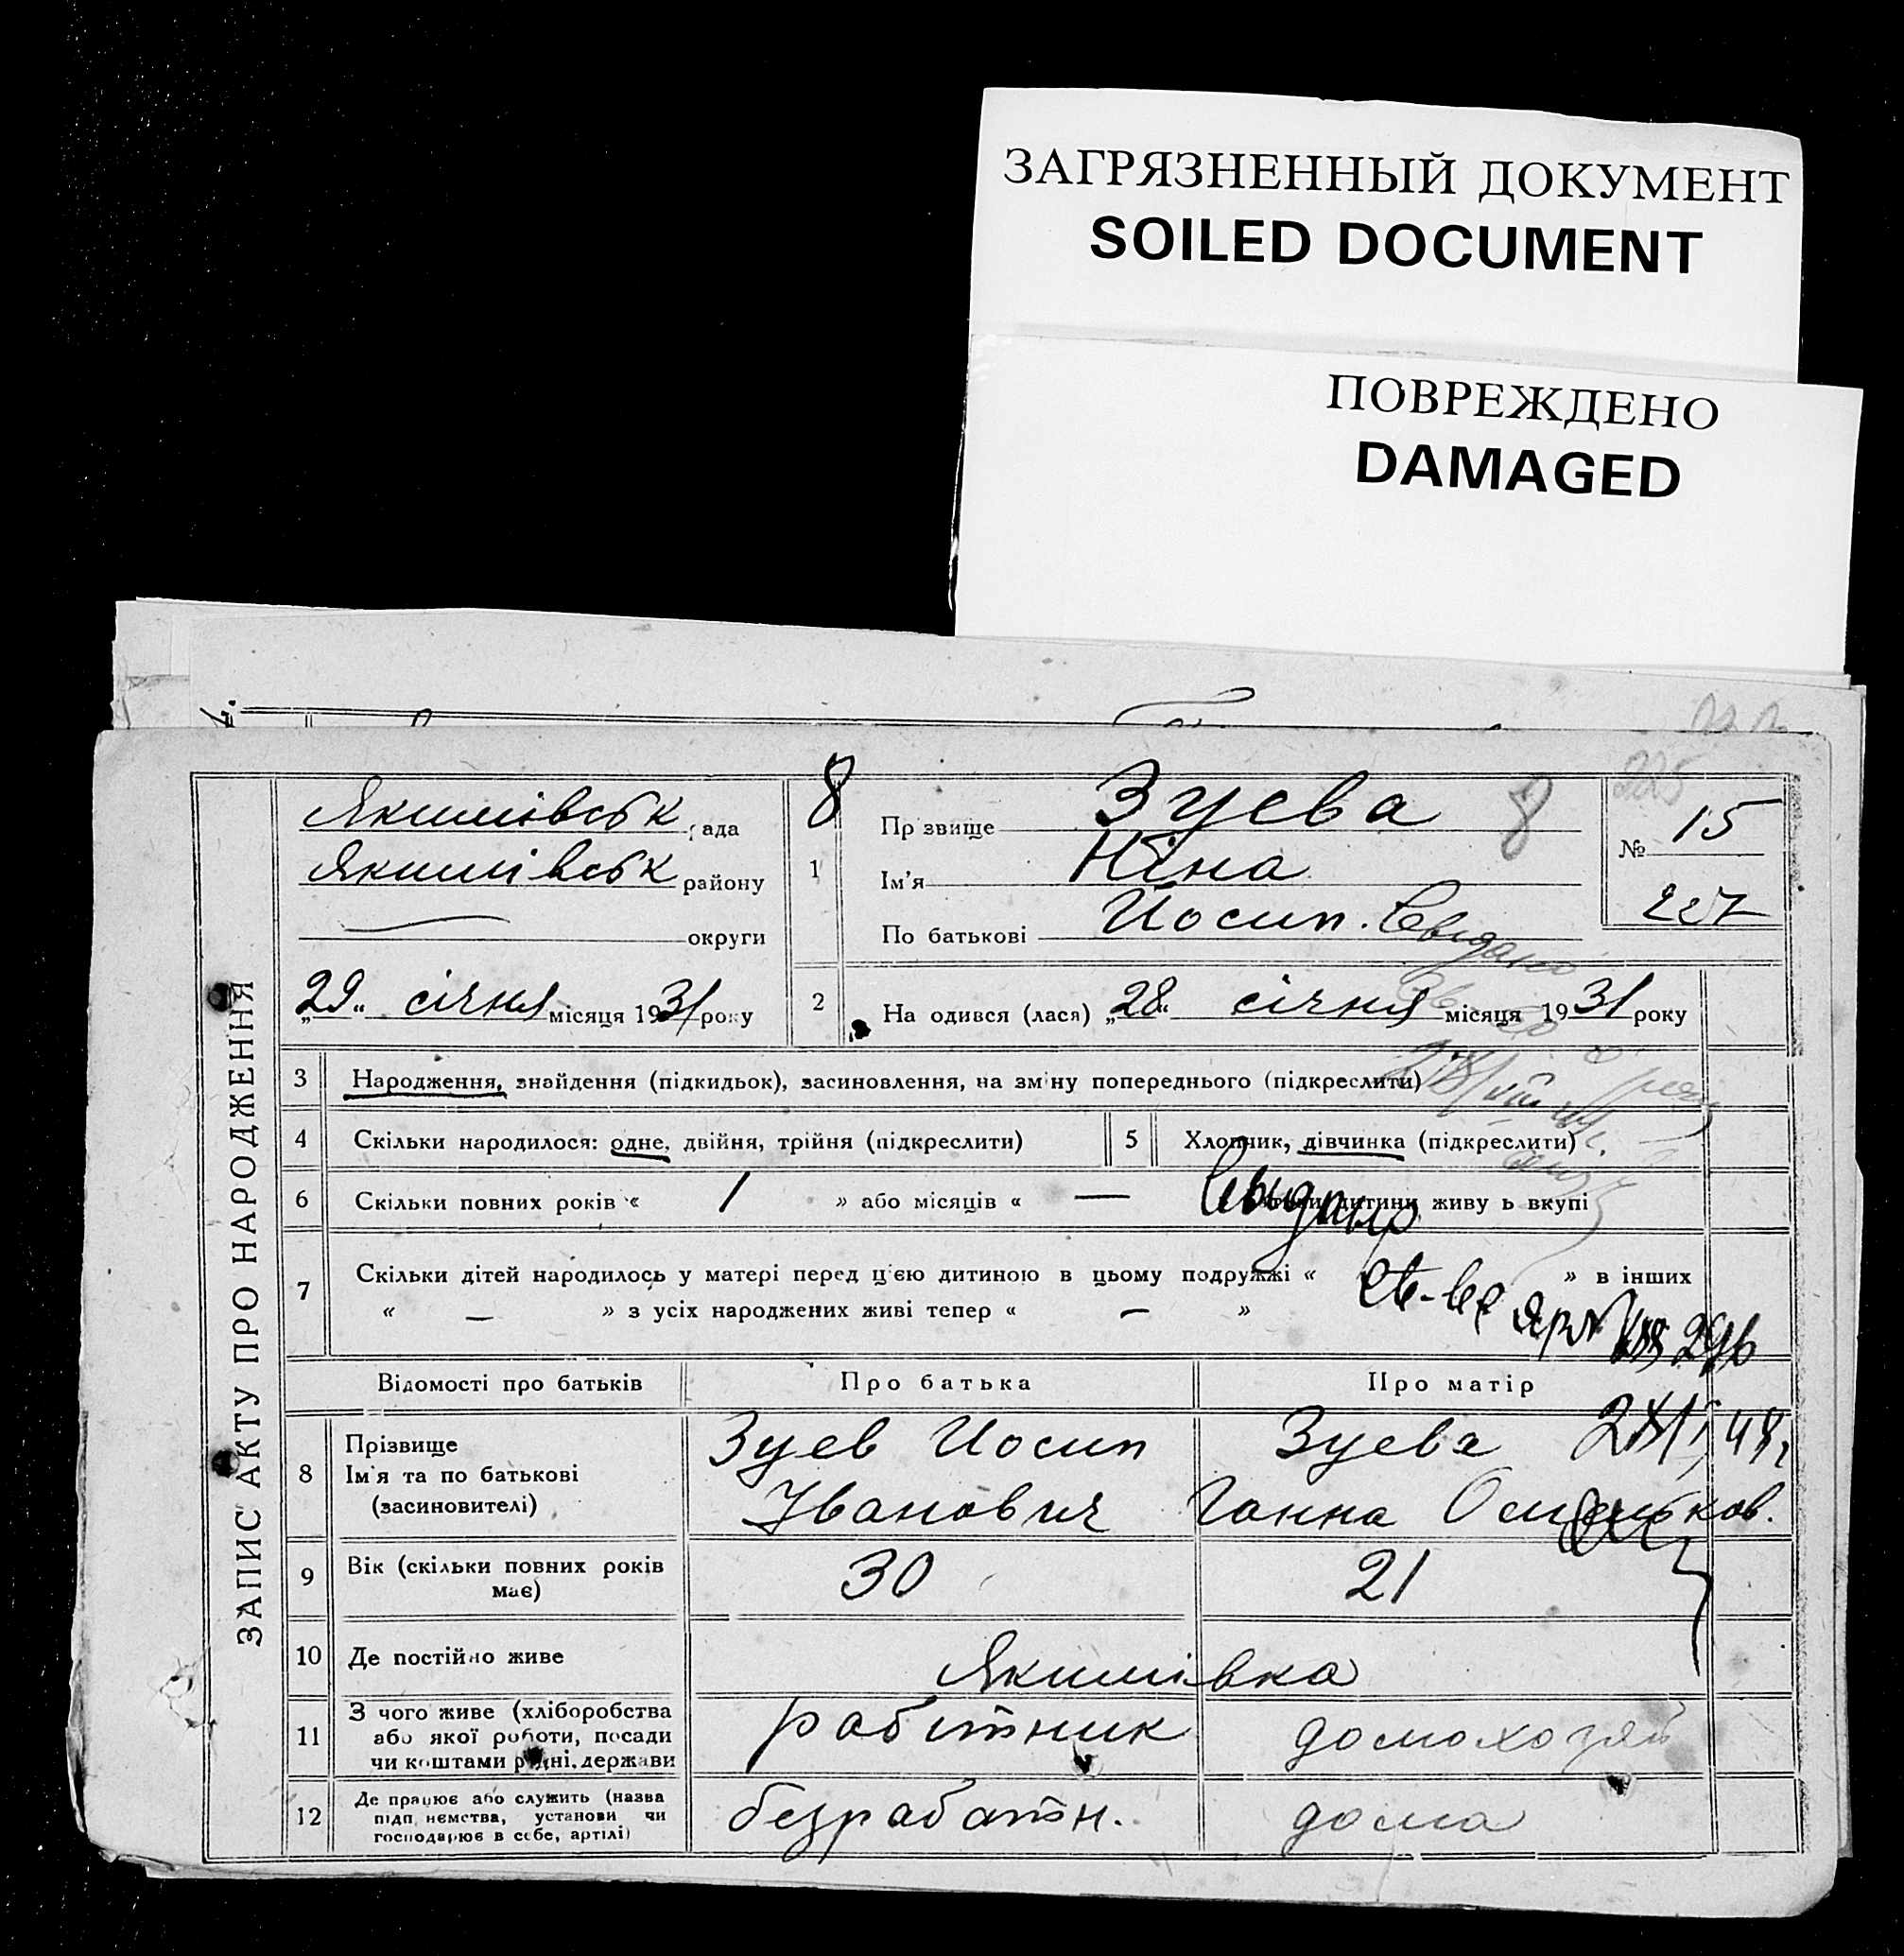 ЗАГРЯЗНЕННЫЙ ДОКУМЕНТ
SOILED DOCUMENT
ПОВРЕЖДЕНО
DAMAGED
ЗАПИС АКТУ ПРО НАРОДЖЕННЯ
225
Якимівськ рада
Якимівськ району
округи
„29“ січня місяця 1931 року
8
1
Прізвище Зуєва 8
Ім'я Ніна
По батькові Йосип.
№ 15
227
2 Народився (лася) „28“ січня місяця 1931 року
3 Народження, знайдення (підкидьок), засиновлення, на зміну попереднього (підкреслити)
4 Скільки народилося: одне, двійня, трійня (підкреслити) 5 Хлопчик, дівчинка (підкреслити)
6 Скільки повних років « 1 » або місяців « — дитини живуть вкупі
7 Скільки дітей народилось у матері перед цією дитиною в цьому подружжі « » в інших
« — » з усіх народжених живі тепер « — »
Відомості про батьків Про батька Про матір
8 Прізвище
Ім'я та по батькові
(засиновителі)
Зуев Йосип
Іванович
Зуева
Ганна
9 Вік (скільки повних років має) 30 21
10 Де постійно живе Якимівка
11 З чого живе (хліборобства
або якої роботи, посади
чи коштами рідні, держави
робітник домохозяй
12 Де працює або служить (назва
підприємства, установи чи
господарює в себе, артілі)
безработн. дома